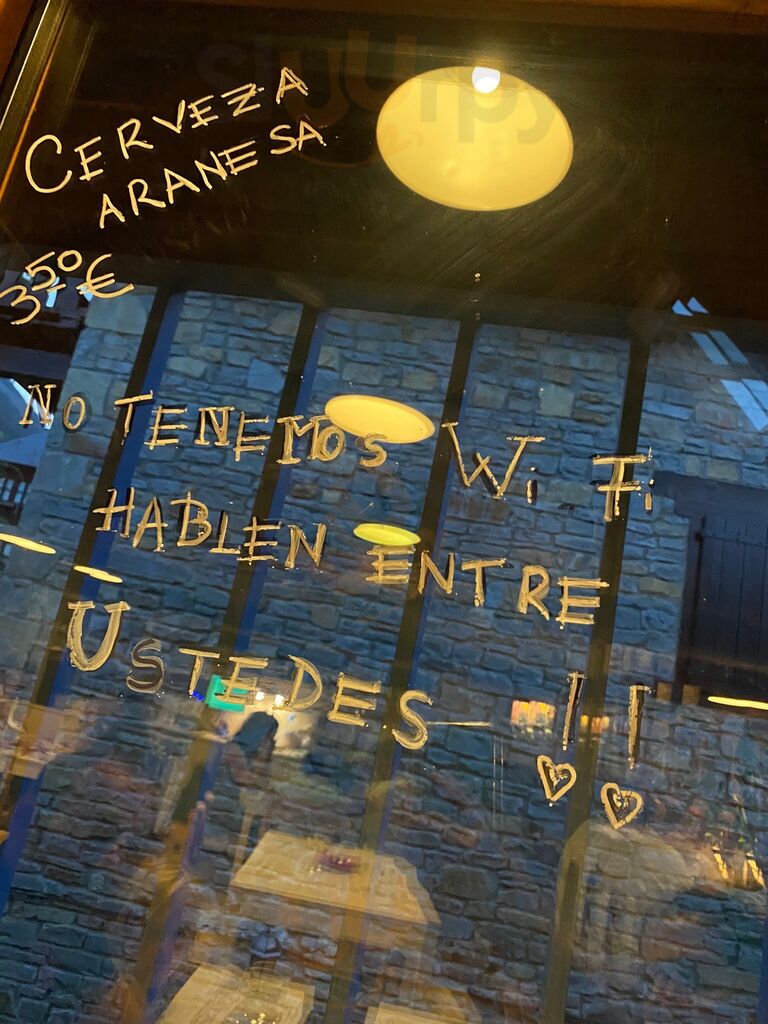 CERVEZA
ARANESA
3,50€
NO TENEMOS Wi Fi
HABLEN ENTRE
USTEDES !!
sluurpy